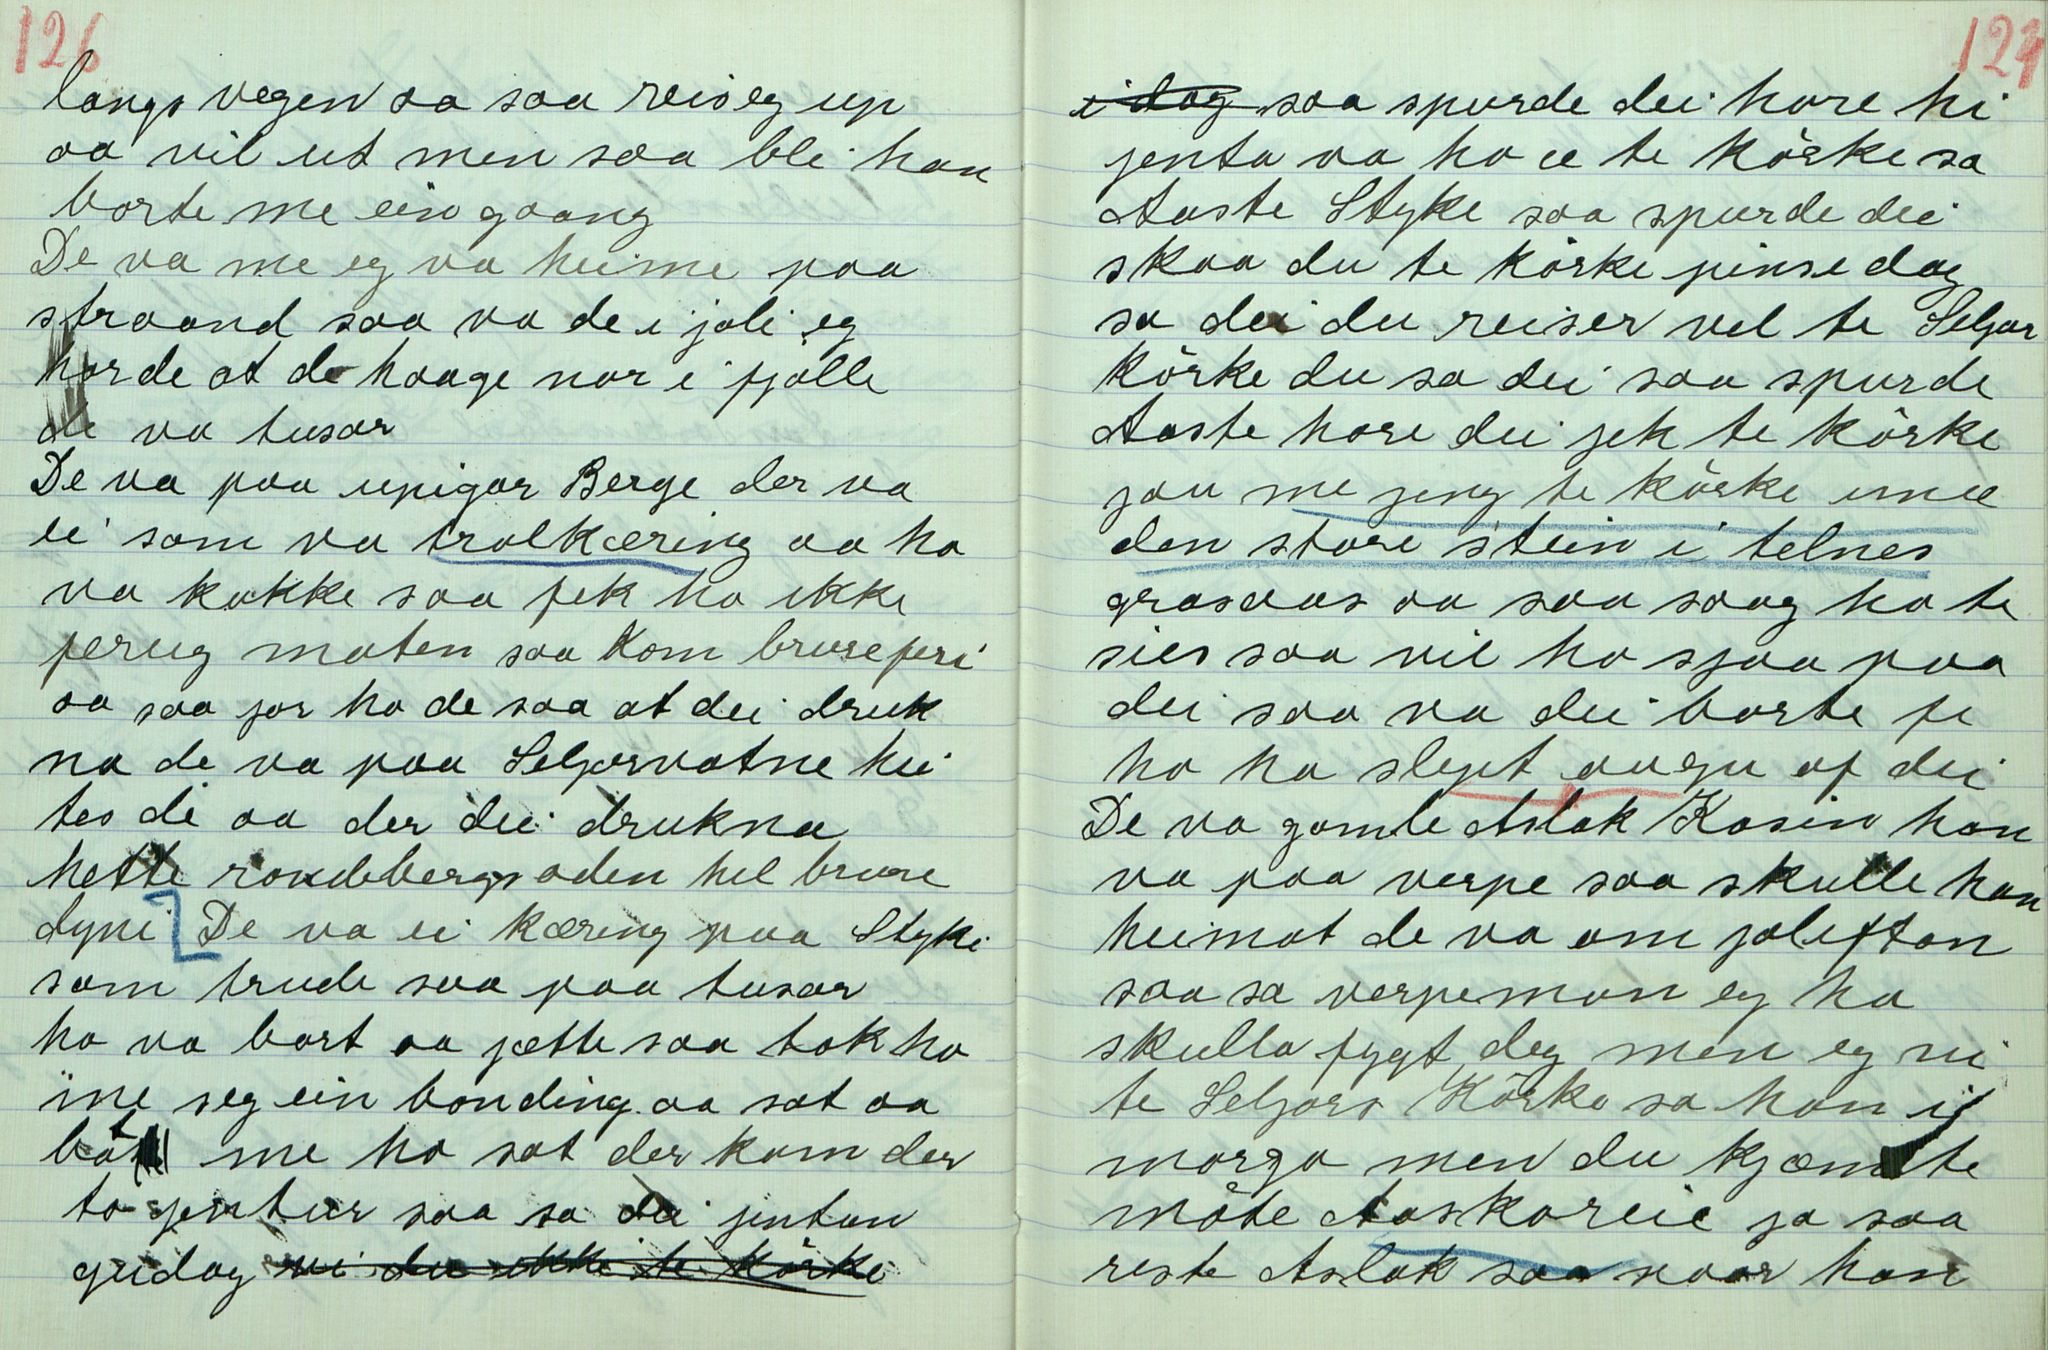 126
langs vegen aa saa reis eg up
aa vil ut men saa blei han
borte me ein gaang
De va me eg va heime paa
straand saa va de i joli eg
horde at de haage nor i fjølle
de va tusar
De va paa upigar Berge der va
ei som va trolkæring aa ho
va kokke saa fek ho ikke
ferug maten saa kom bruseferi
aa saa jor ho de saa at dei druk
na de va paa Seljorvatne hei
tes di aa der dei drukna
hette rondebergsoden hel bruse
dypi De va ei kæring paa Styki
som trude saa paa tusar
ho va bort aa jætte saa tok ho
ine seg ein bonding aa sat aa
bøt me ho sat der kom der
to jentur saa sa dei jentun
gudag vi du ikke te kørke
124
i dag saa spurde dei hore hi
jenta va ho æ te kørke sa
Aaste Styke saa spurde dei
skaa du te kørke pinsedag
sa dei du reiser vel te Seljor
kørke du sa dei saa spurde
Aaste hore dei jek te kørke
jau me jeng te kørke unde
den store stein i telnes
grasaas aa saa saag ho te
sies saa vil ho sjaa paa
dei saa va dei borte fe
ho ha slept augu af dei
De va gamle Aslak Kosin han
va paa verpe saa skulle han
heimat de va om joleftan
saa sa verpemon eg ha
skulla fygt deg men eg ri
te Seljors Kørke sa han i
morgo men du kjæm te
møte Aaskoreie ja saa
reste Aslak saa naar han